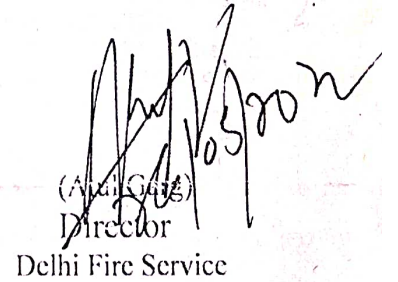 (Atul Garg)
Director
Delhi Fire Service